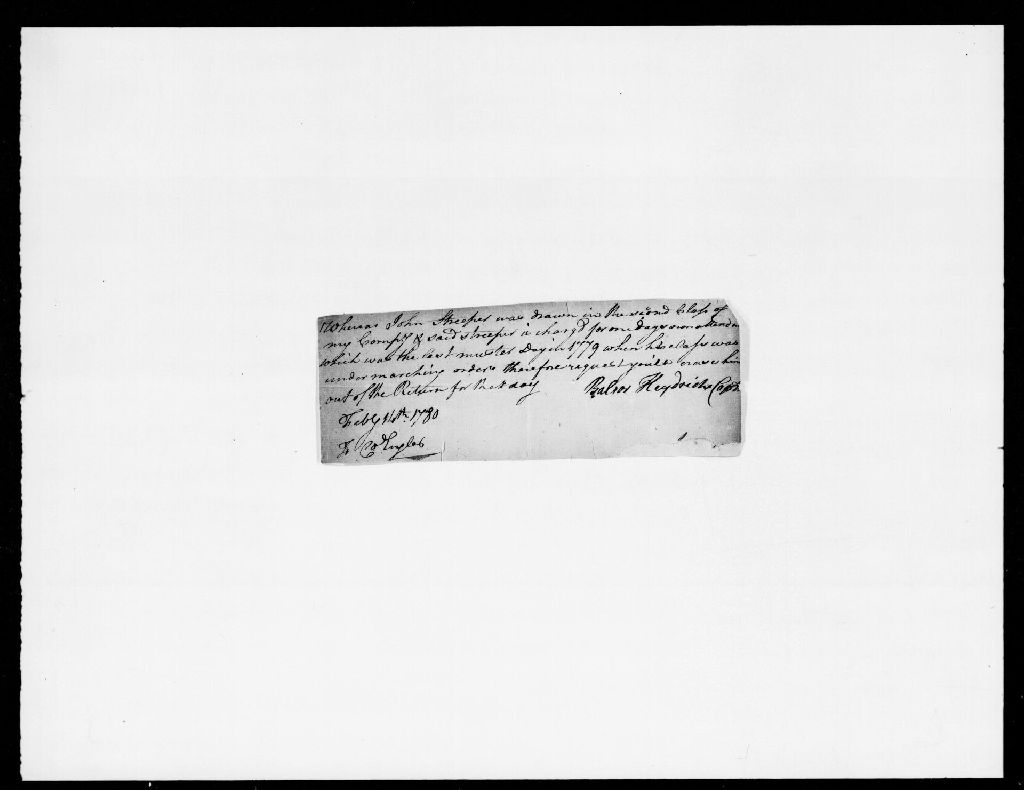 Whereas John Streeper was drawn in the second Class of
my Compy & said streeper is charg'd for one days non attendn
which was the last muster Day in 1779 when his Class was
under marching orders therefore request you'd erase him
out of the Return for that day
Balser Heydrick Capt
Feby 14th 1780
To Co Engles